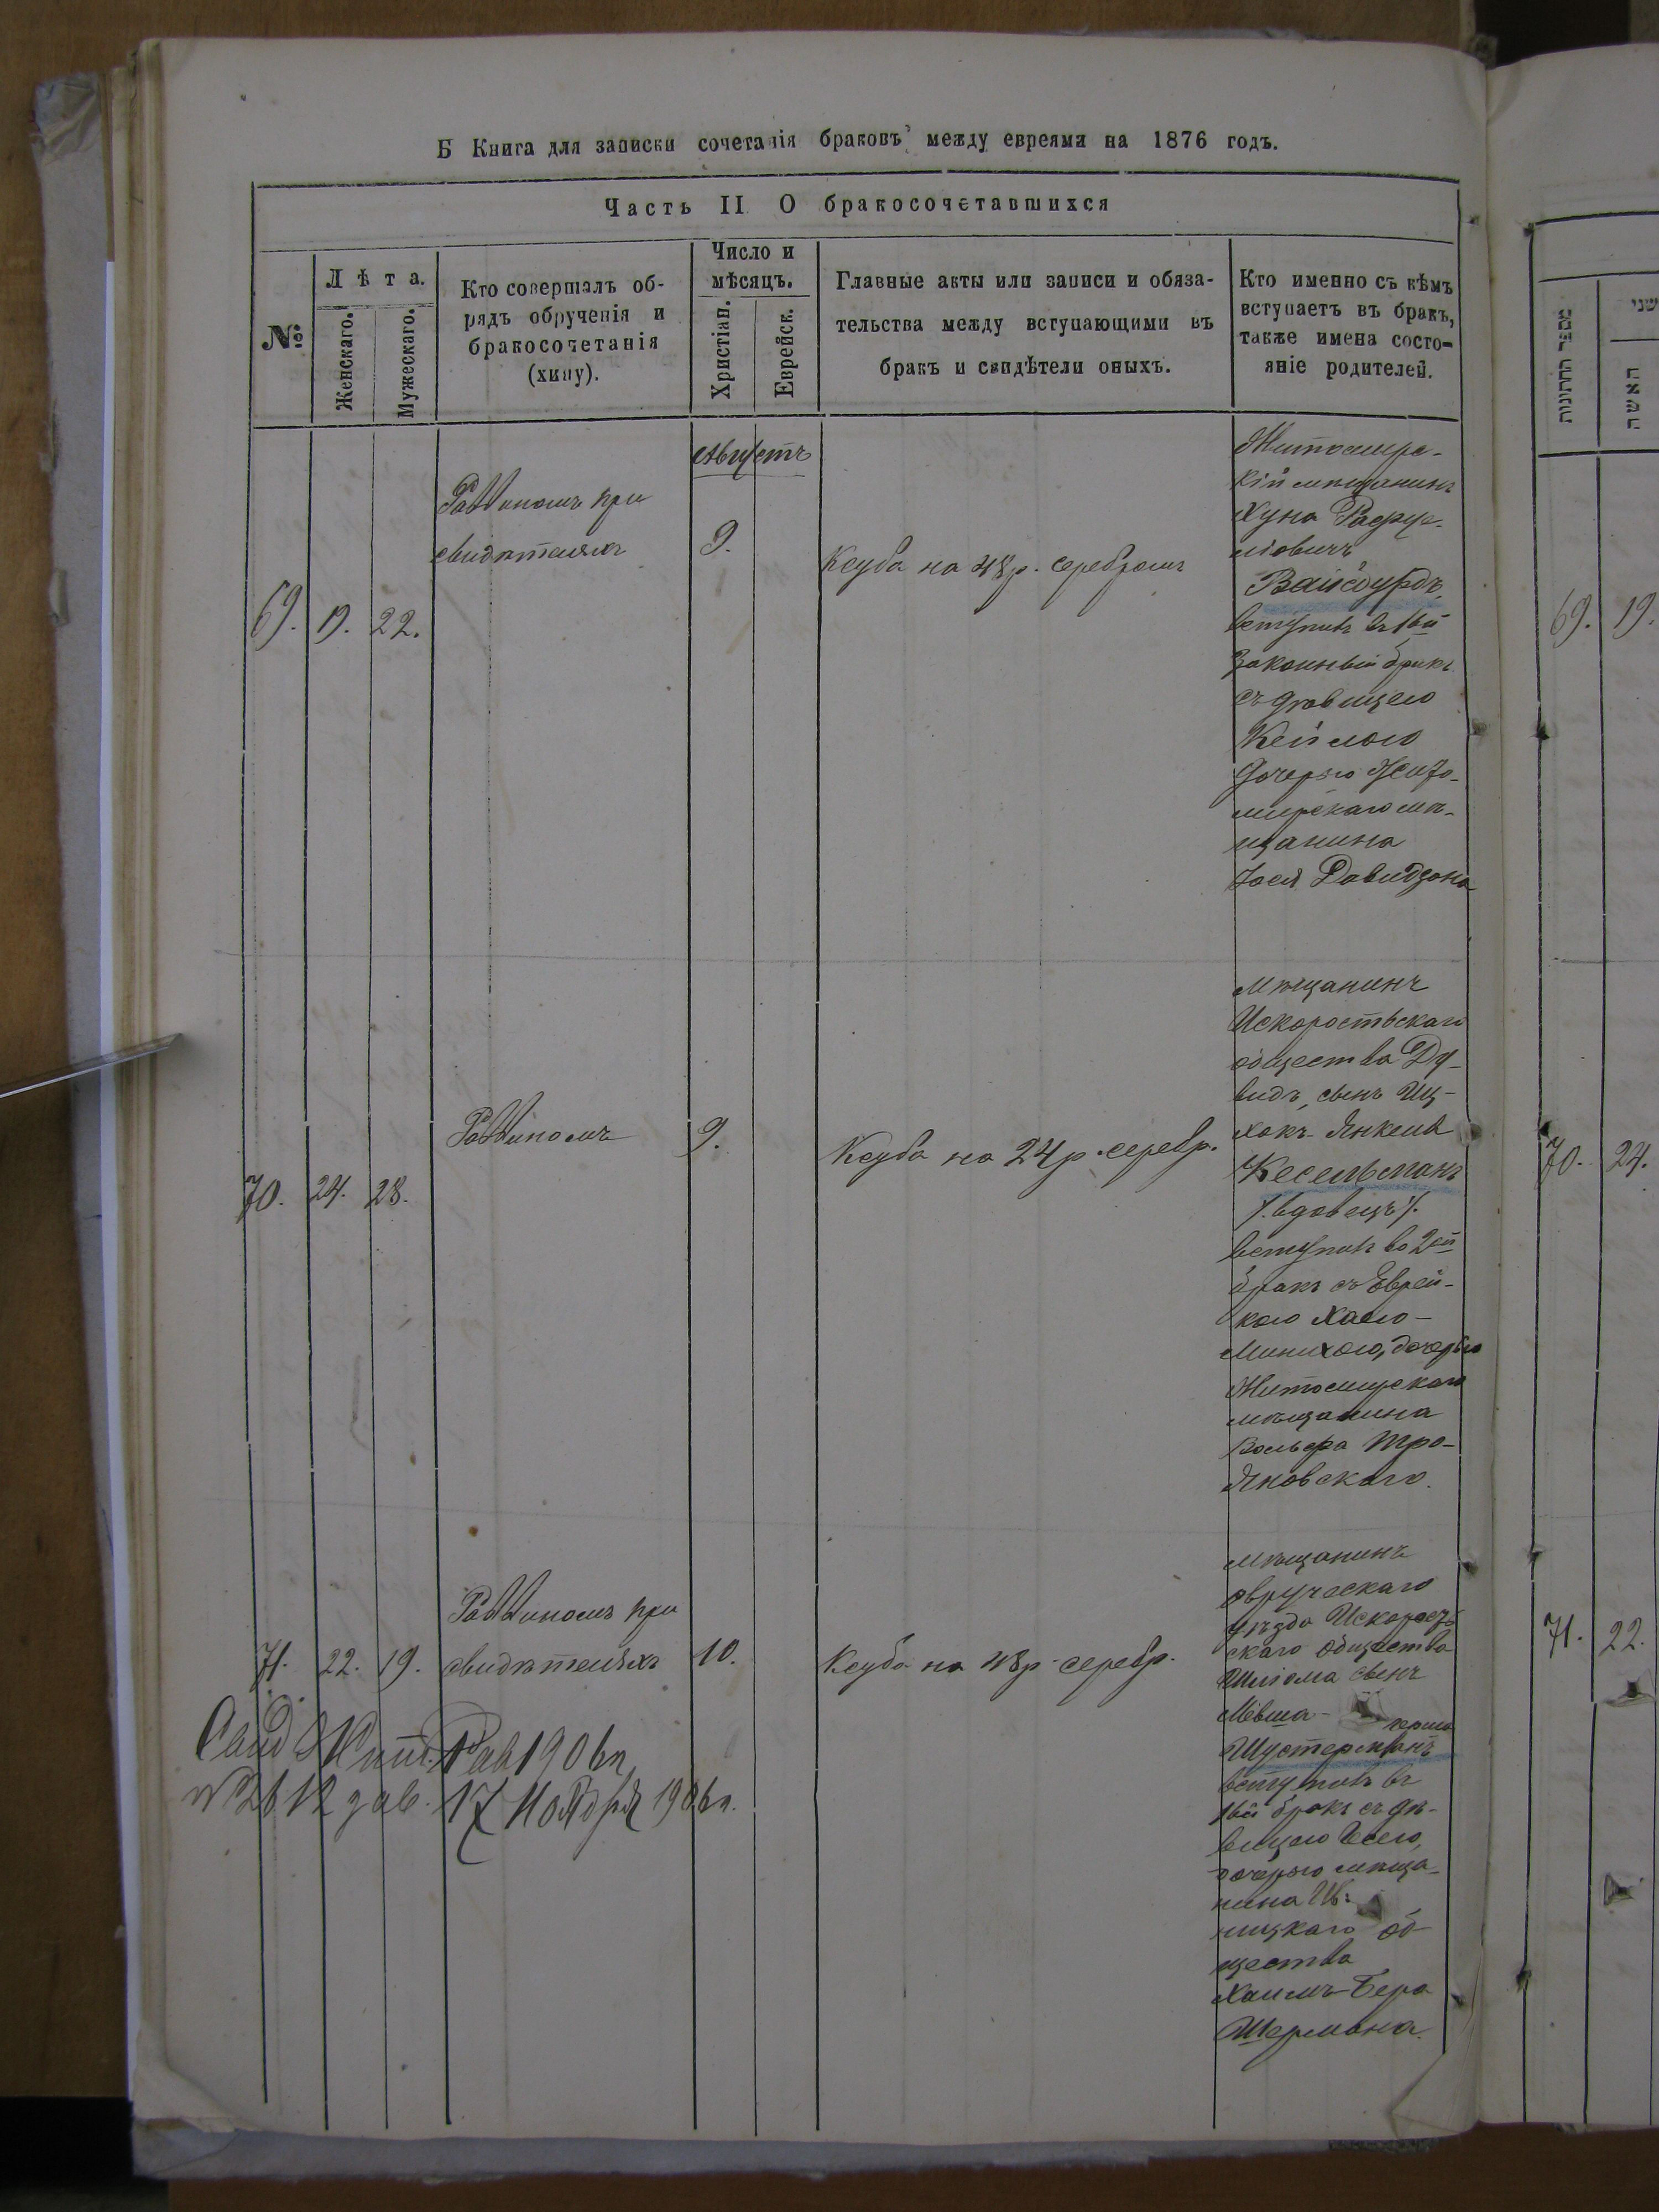 Б Книга для записки сочетанія браковъ между евреями на 1876 годъ.
Часть II О бракосочетавшихся
№
Лѣта.
Женскаго.
Мужескаго.
Кто совершалъ об-
рядъ обрученія и
бракосочетанія
(хипу).
Число и
мѣсяцъ.
Христіан.
Еврейск.
Главные акты или записи и обяза-
тельства между вступающими въ
бракъ и свидѣтели оныхъ.
Кто именно съ кѣмъ
вступаетъ въ бракъ,
также имена состо-
яніе родителей.
69.
19.
22.
Раввиномъ при
свидѣтеляхъ
Августъ
9.
Ксуба на 48 р. серебромъ
Житомирс-
кій мѣщанинъ
Хуна Рафуе-
ліовичъ
Вайсбурдъ
вступилъ въ 1вый
законный бракъ
съ дѣвицею
Кейлою
дочерью Жито-
мирскаго мѣ-
щанина
Іося Давидзона
70.
24.
28.
Раввиномъ
9.
Ксуба на 24 р. серебр.
Мѣщанинъ
Искоростьскаго
общества Ду-
видъ, сынъ Иц-
хокъ-Янкеля
Кесельманъ
/.вдовецъ/.
вступилъ во 2ой
бракъ съ Еврей-
кою Хаею-
дочерью
Житомирскаго
мѣщанина
Вольфа Тро-
яновскаго.
71.
22.
19.
Раввиномъ при
свидѣтеляхъ
10.
Ксуба на 48 р. серебр.
Мѣщанинъ
овручскаго
уѣзда Искорост-
скаго общества
Шліома сынъ
Мевша-
герша
Шустерманъ
вступилъ въ
1вый бракъ съ дѣ-
вицею
дочерью мѣща-
нина Ив:
ницкаго об-
щества
Хаимъ-Бера
Шермана.
1906 г.
№ 2612
17 Ноября 1906 г.
מספר החתונות
שני
האשה
69.
19.
70.
24.
71.
22.